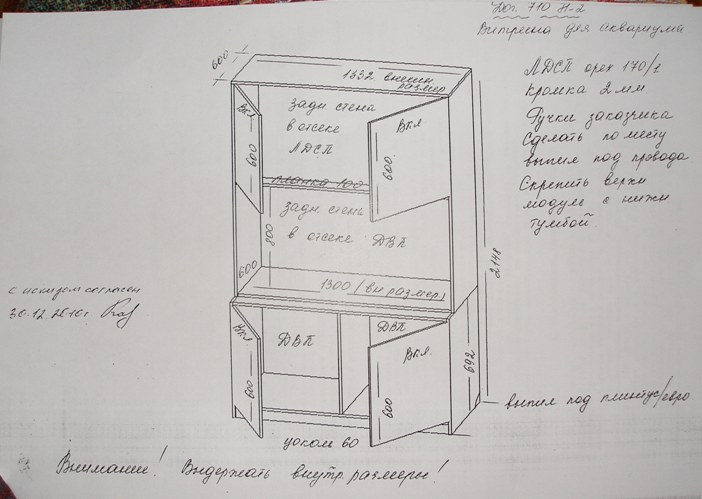 Дог. 710 Н-2
Витрина для аквариума
600
1332 внешн размер
ЛДСП орех 170/1
Кромка 2 мм
Ручки заказчика
Сделать по месту
выпил под провода
Скрепить верхн
модуль с нижн
тумбой
Вкл
600
задн стена
в отсеке
ЛДСП
Вкл
600
планка 100
задн. стена
в отсеке ДВП
800
600
1300 (вн размер)
2148
с эскизом согласен
30.12.2010г.
Вкл
600
ДВП
ДВП
Вкл.
600
692
выпил под плинтус/евро.
цоколь 60
Внимание! Выдержать внутр. размеры!